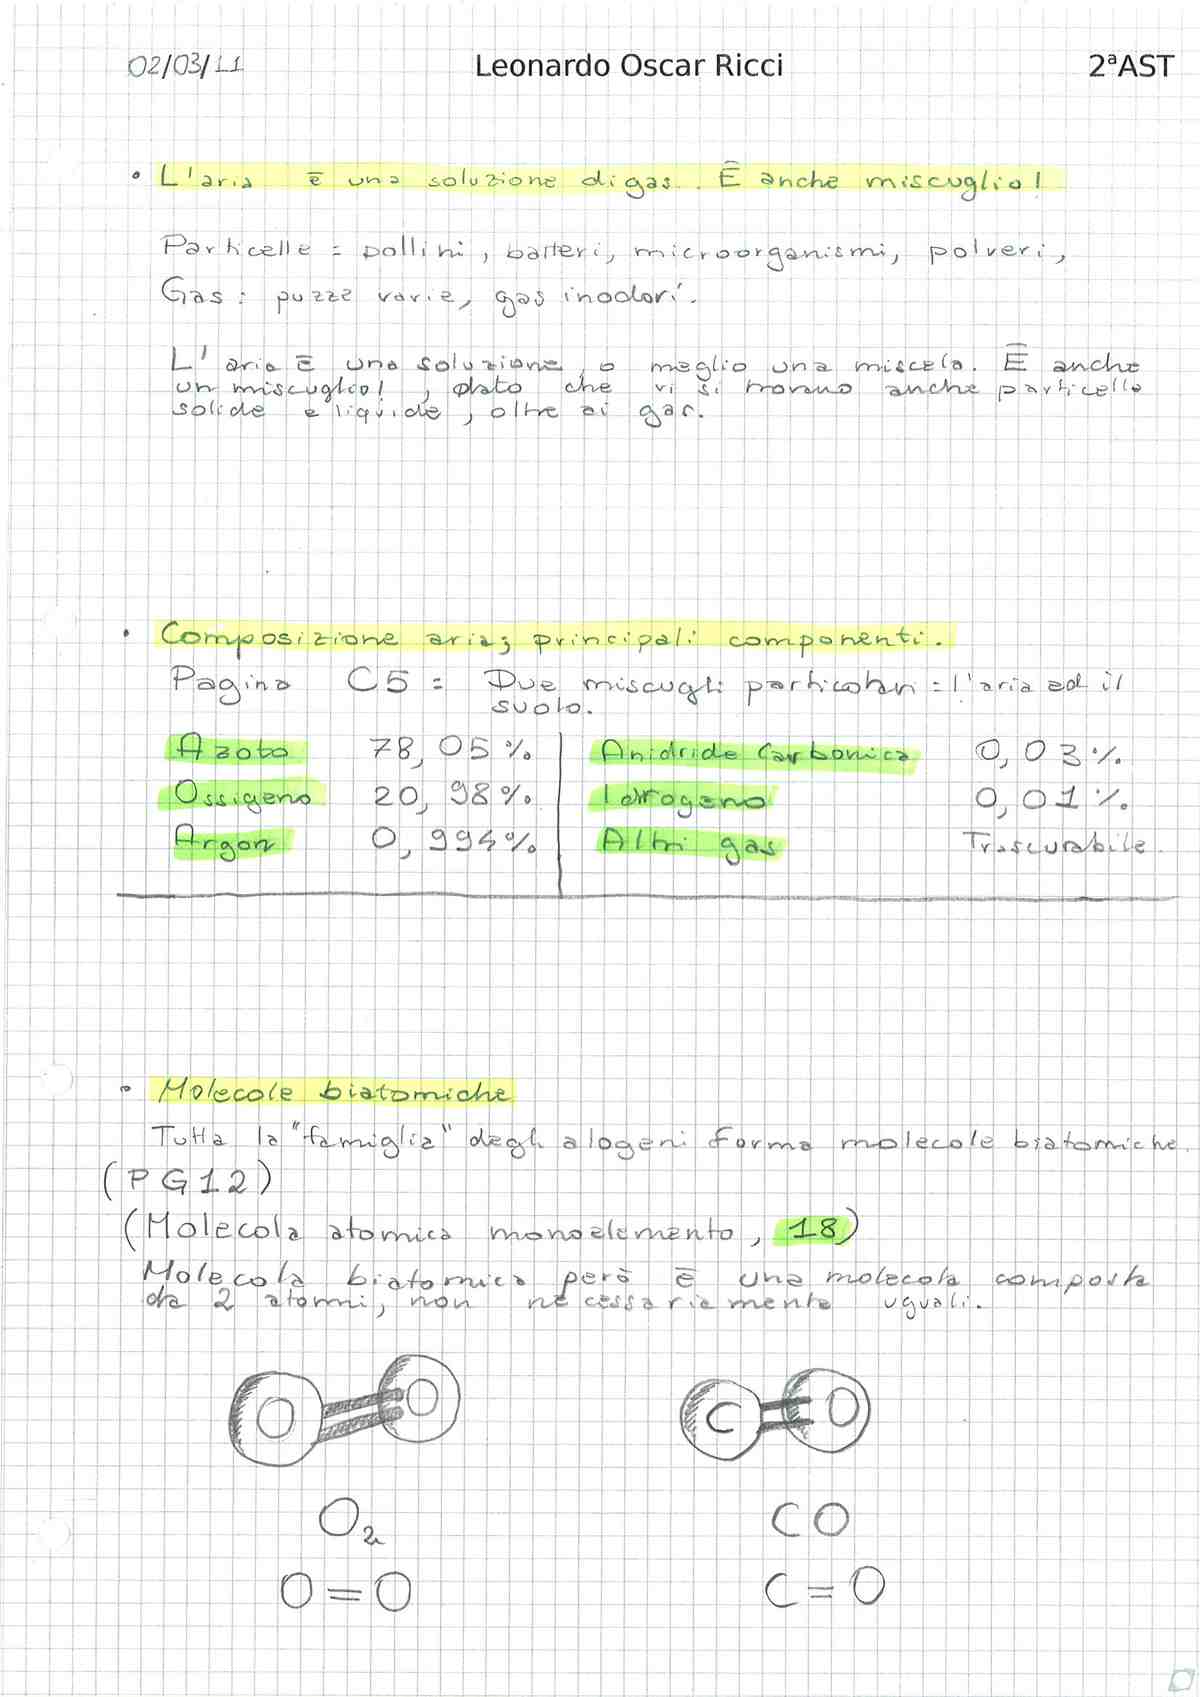 02/03/11 Leonardo Oscar Ricci 2ªAST
• L'aria è una soluzione di gas. È anche miscuglio!
Particelle = pollini, batteri, microorganismi, polveri,
Gas: puzze varie, gas inodori.
L'aria è una soluzione, o meglio una miscela. È anche
un miscuglio!, dato che vi si trovano anche particelle
solide e liquide, oltre ai gas.
• Composizione aria; principali componenti.
Pagina C5 = Due miscugli particolari = l'aria ed il
suolo.
Azoto 78,05% Anidride Carbonica 0,03%
Ossigeno 20,98% Idrogeno 0,01%
Argon 0,994% Altri gas Trascurabile.
• Molecole biatomiche
Tutta la "famiglia" degli alogeni forma molecole biatomiche.
(PG12)
(Molecola atomica monoelemento, 18)
Molecola biatomica però è una molecola composta
da 2 atomi, non necessariamente uguali.
O O C O
O₂ CO
O=O C=O